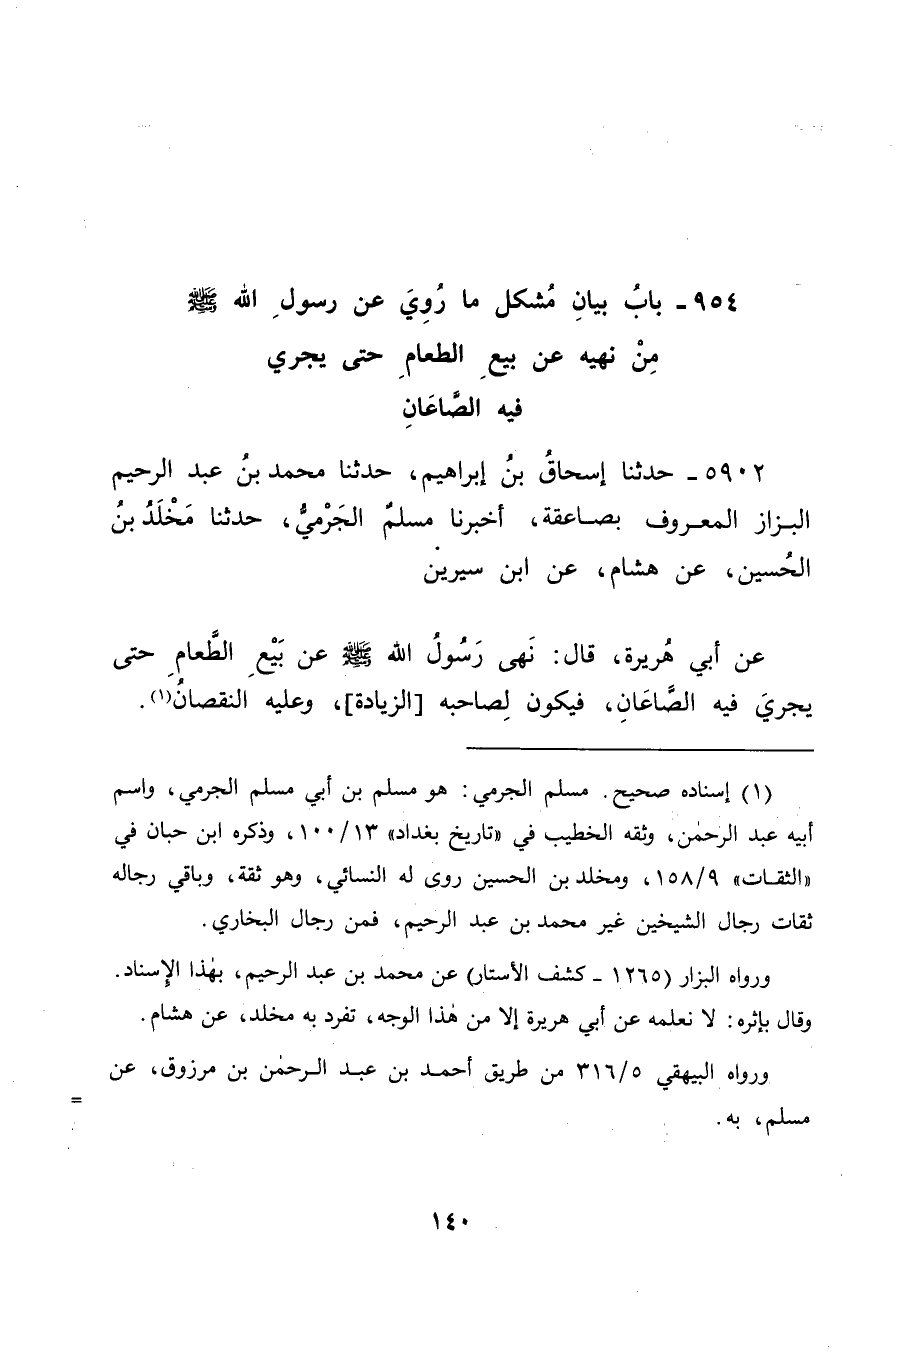 ٩٥٤ - بابُ بيانِ مُشكل ما رُوِيَ عن رسولِ الله ﷺ
مِنْ نهيه عن بيعِ الطعامِ حتى يجري
فيه الصَّاعَانِ
٥٩٠٢ - حدثنا إسحاقُ بنُ إبراهيم، حدثنا محمد بنُ عبد الرحيم
البزاز المعروف بصاعقة، أخبرنا مسلمٌ الجَرْميُّ، حدثنا مَخْلَدُ بنُ
الحُسين، عن هشام، عن ابن سيرين
عن أبي هُريرة، قال: نَهى رَسُولُ الله ﷺ عن بَيْعِ الطَّعامِ حتى
يجريَ فيه الصَّاعَانِ، فيكون لِصاحبه [الزيادة]، وعليه النقصانُ(١).
(١) إسناده صحيح. مسلم الجرمي: هو مسلم بن أبي مسلم الجرمي، واسم
أبيه عبد الرحمٰن، وثقه الخطيب في «تاريخ بغداد» ١٠٠/١٣، وذكره ابن حبان في
«الثقات» ١٥٨/٩، ومخلد بن الحسين روى له النسائي، وهو ثقة، وباقي رجاله
ثقات رجال الشيخين غير محمد بن عبد الرحيم، فمن رجال البخاري.
ورواه البزار (١٢٦٥ - كشف الأستار) عن محمد بن عبد الرحيم، بهٰذا الإِسناد.
وقال بإثره: لا نعلمه عن أبي هريرة إلا من هٰذا الوجه، تفرد به مخلد، عن هشام.
ورواه البيهقي ٣١٦/٥ من طريق أحمد بن عبد الرحمٰن بن مرزوق، عن
مسلم، به.
=
١٤٠